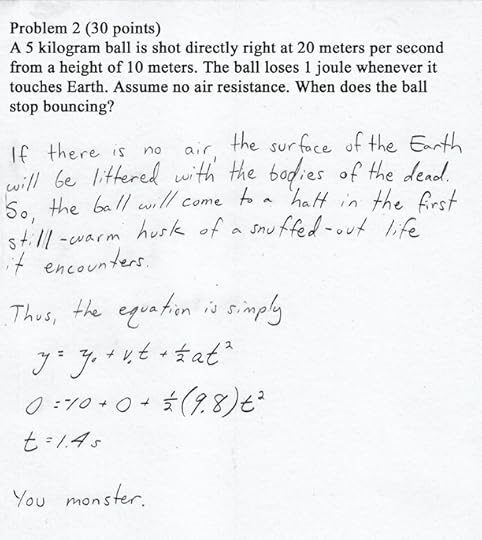 Problem 2 (30 points)
A 5 kilogram ball is shot directly right at 20 meters per second
from a height of 10 meters. The ball loses 1 joule whenever it
touches Earth. Assume no air resistance. When does the ball
stop bouncing?
If there is no air, the surface of the Earth
will be littered with the bodies of the dead.
So, the ball will come to a halt in the first
still-warm husk of a snuffed-out life
it encounters.
Thus, the equation is simply
y = y₀ + v₁t + ½at²
0 = -10 + 0 + ½(9.8)t²
t = 1.4 s
You monster.